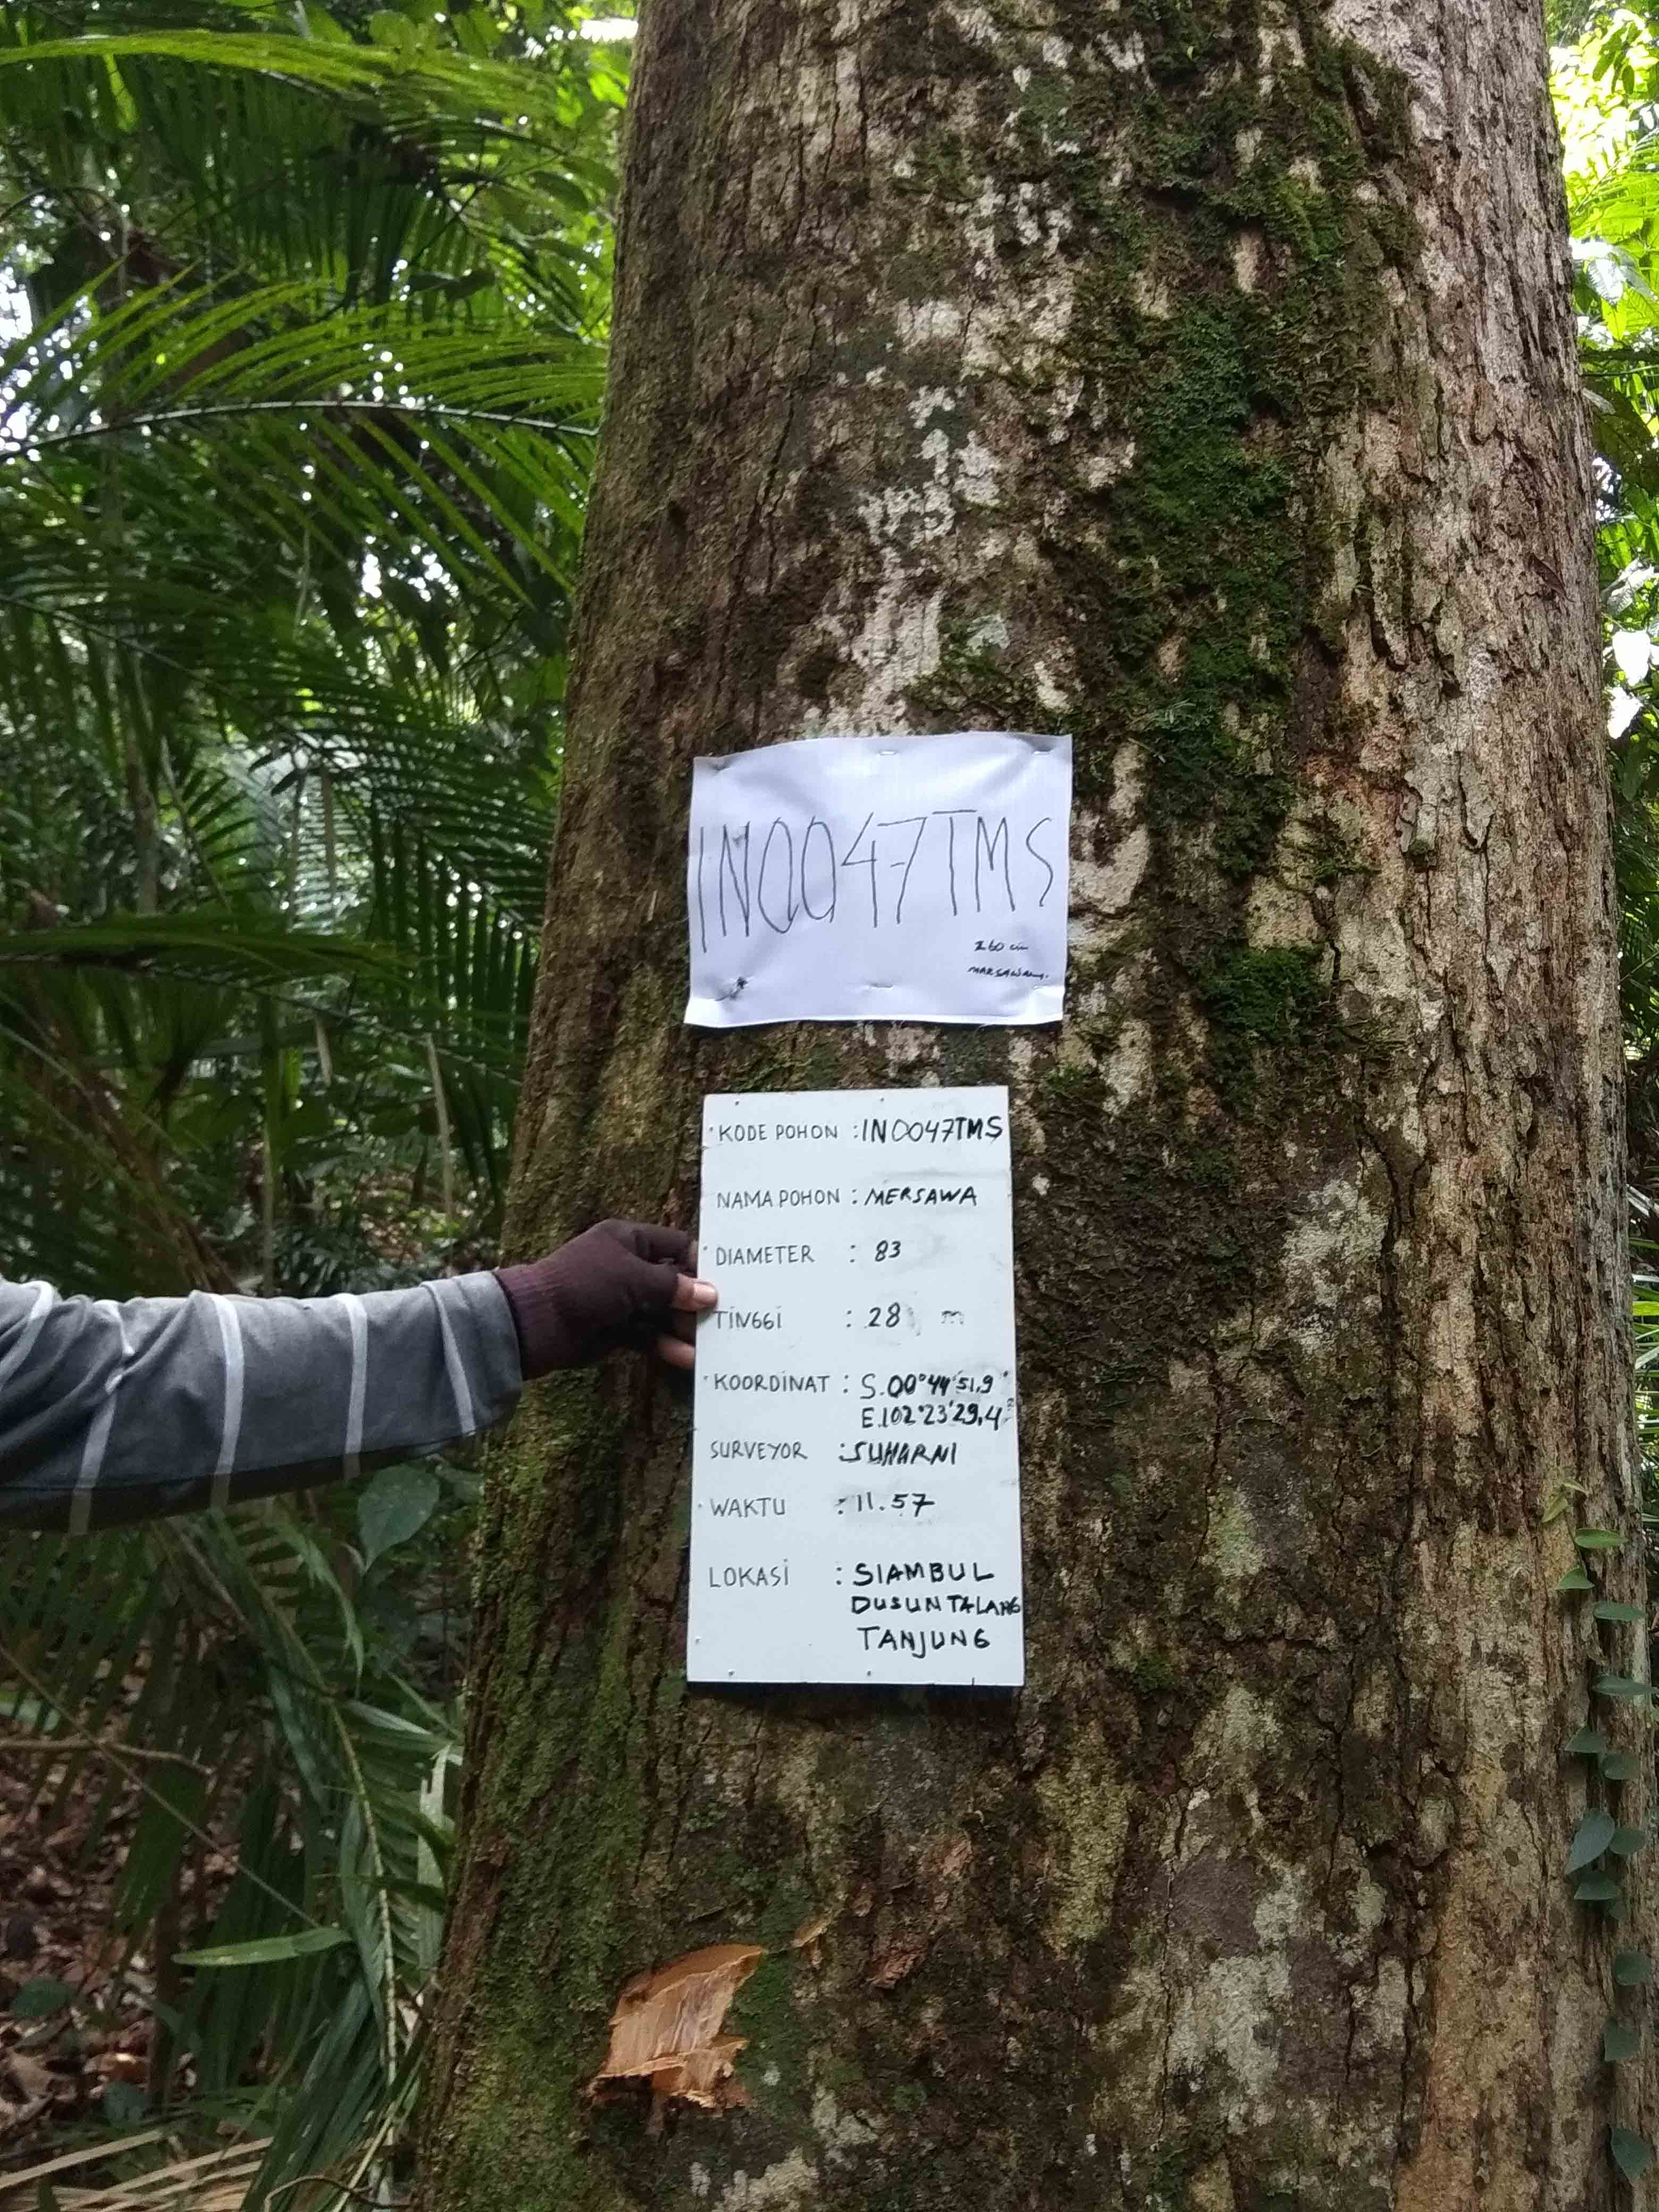 IN0047TMS
260 cm
MARSAWA
KODE POHON : IN0047TMS
NAMA POHON : MERSAWA
DIAMETER : 83
TINGGI : 28 m
KOORDINAT : S.00°44'51,9"
E.102°23'29,4"
SURVEYOR : SUHARNI
WAKTU : 11.57
LOKASI : SIAMBUL
DUSUN TALANG
TANJUNG